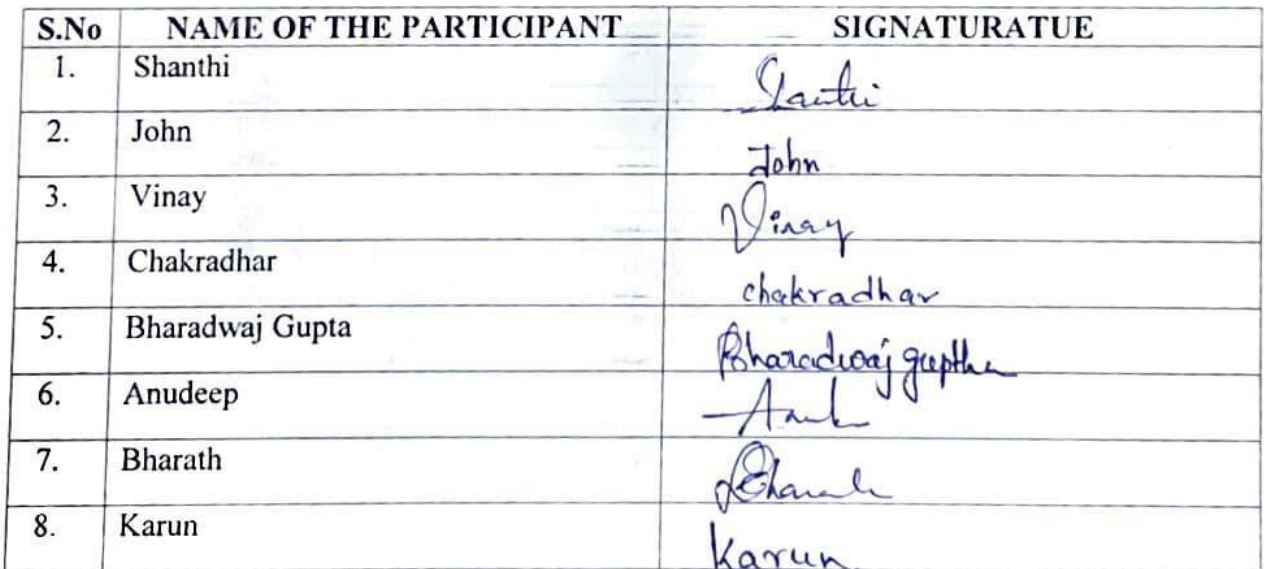 S.No NAME OF THE PARTICIPANT SIGNATURATUE
1. Shanthi Shanthi
2. John John
3. Vinay Vinay
4. Chakradhar chakradhar
5. Bharadwaj Gupta Bharadwaj guptha
6. Anudeep
7. Bharath
8. Karun Karun